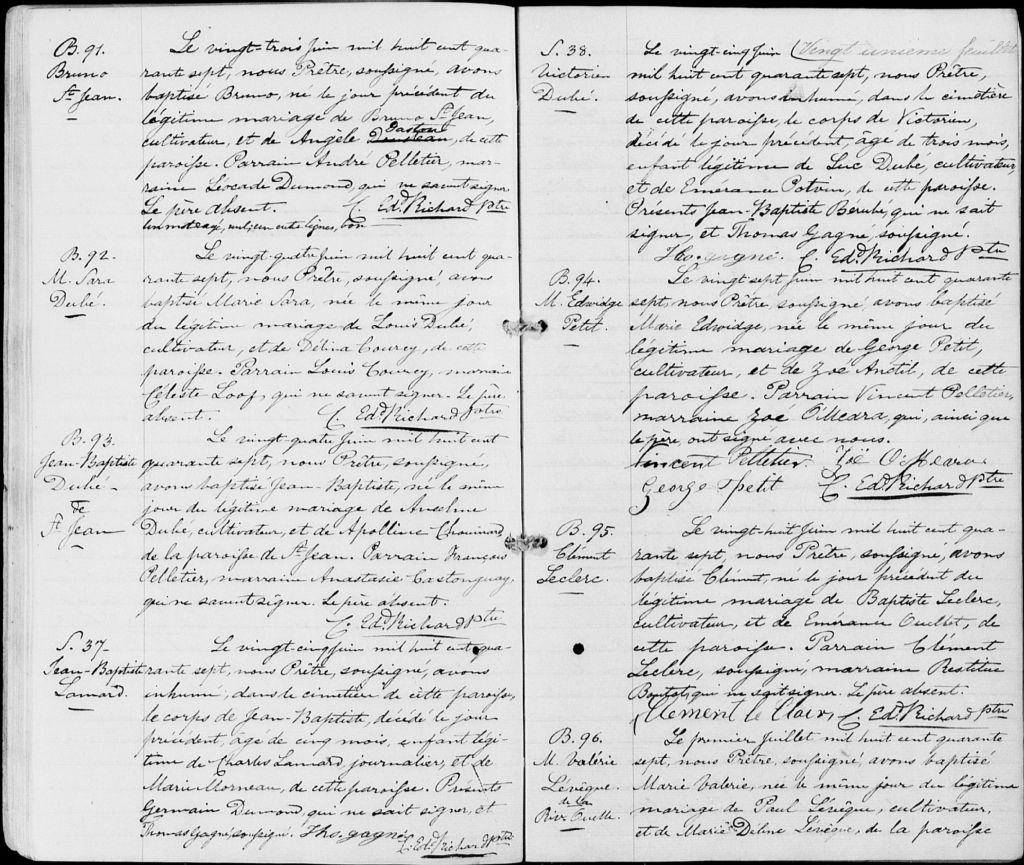 B. 91.
Bruno
St Jean.
Le vingt-trois Juin mil huit cent qua-
rante sept, nous Prêtre, soussigné, avons
baptisé Bruno, né le jour précédent du
légitime mariage de Bruno St Jean,
cultivateur, et de Angèle Gaston, de cette
paroisse. Parrain André Pelletier, mar-
raine Léocade Dumond, qui ne savent signer
Le père absent. C. Edd Richard Ptre
un mot rayé, un en entre lignes, bon
B. 92.
M. Sara
Dubé.
Le vingt-quatre Juin mil huit cent qua-
rante sept, nous Prêtre, soussigné, avons
baptisé Marie Sara, née le même jour
du légitime mariage de Louis Dubé,
cultivateur, et de Délina Courcy, de cette
paroisse. Parrain Louis Courcy, marraine
Céleste Loof, qui ne savent signer. Le père
absent. C. Edd Richard Ptre
B. 93.
Jean-Baptiste
Dubé
de
St Jean
Le vingt-quatre Juin mil huit cent
quarante sept, nous Prêtre, soussigné,
avons baptisé Jean-Baptiste, né le même
jour du légitime mariage de Anselme
Dubé, cultivateur, et de Apolline Chouinard,
de la paroisse de St Jean. Parrain François
Pelletier, marraine Anastasie Castonguay,
qui ne savent signer. Le père absent.
C. Edd Richard Ptre
S. 37
Jean-Baptiste
Lamard.
Le vingt-cinq Juin mil huit cent qua-
rante sept, nous Prêtre, soussigné, avons
inhumé, dans le cimetière de cette paroisse,
le corps de Jean-Baptiste, décédé le jour
précédent, âgé de cinq mois, enfant légi-
time de Charles Lamard, journalier, et de
Marie Morneau, de cette paroisse. Présents
Germain Dumond, qui ne sait signer, et
Thomas Gagné, soussigné. Tho. gagné C. Edd Richard Ptre
S. 38.
Victorien
Dubé.
Le vingt-cinq Juin (Vingt unième feuillet
mil huit cent quarante sept, nous Prêtre,
soussigné, avons inhumé, dans le cimetière
de cette paroisse, le corps de Victorien,
décédé le jour précédent, âgé de trois mois,
enfant légitime de Luc Dubé, cultivateur,
et de Emerance Potvin, de cette paroisse.
Présents Jean-Baptiste Bérubé, qui ne sait
signer, et Thomas Gagné, soussigné.
Tho. gagné. C. Edd Richard Ptre
B. 94.
M. Edwidge
Petit.
Le vingt-sept Juin mil huit cent quarante
sept, nous Prêtre, soussigné, avons baptisé
Marie Edwidge, née le même jour du
légitime mariage de George Petit,
cultivateur, et de Zoé Anctil, de cette
paroisse. Parrain Vincent Pelletier,
marraine Zoé O'Meara, qui, ainsi que
le père, ont signé avec nous.
Vincent Pelletier. Zoé O'Meara
George Petit C. Edd Richard Ptre
B. 95.
Clément
Leclerc.
Le vingt-huit Juin mil huit cent qua-
rante sept, nous Prêtre, soussigné, avons
baptisé Clément, né le jour précédent du
légitime mariage de Baptiste Leclerc,
cultivateur, et de Emérance Ouellet, de
cette paroisse. Parrain Clément
Leclerc, soussigné, marraine Restitue
Boutot, qui ne sait signer. Le père absent.
Clement le Clair, C. Edd Richard Ptre
B. 96.
M. Valérie
Lévêque.
de la
Rivr Ouelle.
Le premier Juillet mil huit cent quarante
sept, nous Prêtre, soussigné, avons baptisé
Marie Valerie, née le même jour du légitime
mariage de Paul Lévêque, cultivateur,
et de Marie Déline Lévêque, de la paroisse